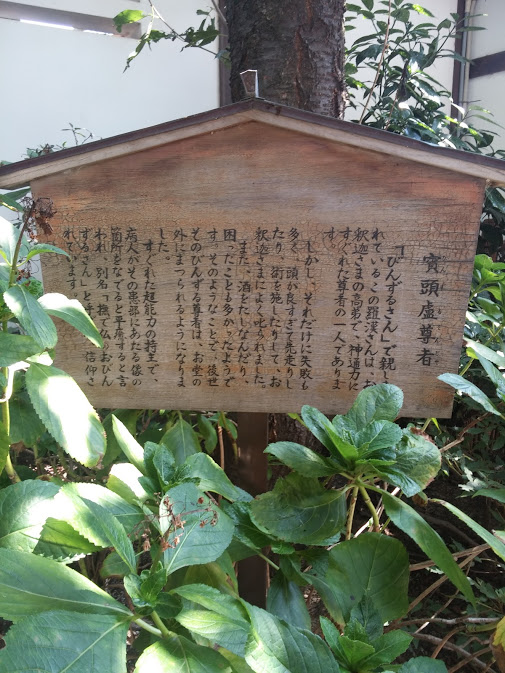 賓頭盧尊者
「びんずるさん」で親しま
れているこの羅漢さんは、お
釈迦さまの高弟で、神通力に
すぐれた尊者の一人でありま
す。
しかし、それだけに失敗も
多く、頭が良すぎて先走りし
たり、術を施したりして、お
釈迦さまによく叱られました。
また、酒をたしなんだり、
困ったことも多かったようで
す。そのようなことで、後世
そのびんずる尊者は、お堂の
外にまつられるようになりま
した。
すぐれた超能力の持主で、
病人がその患部にあたる像の
箇所をなでると直癒すると言
われ、別名「撫で仏のおびん
ずるさん」と
れています。